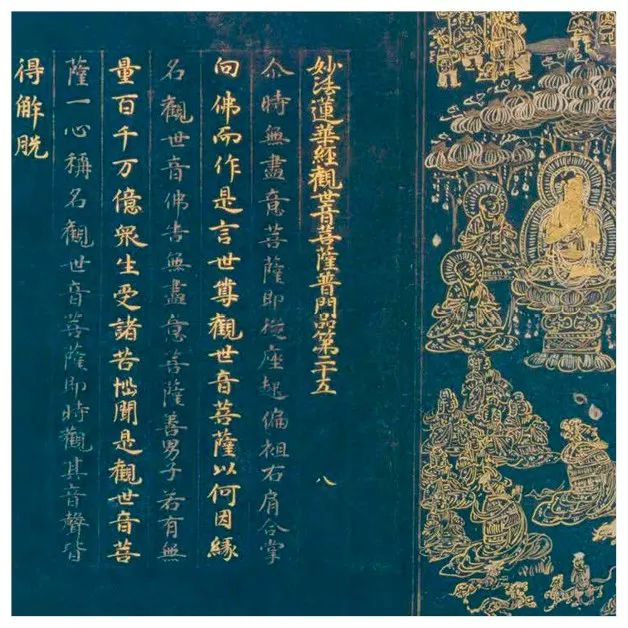 妙法蓮華經觀世音菩薩普門品第二十五
八
尒時無盡意菩薩即從座起偏袒右肩合掌
向佛而作是言世尊觀世音菩薩以何因緣
名觀世音佛告無盡意菩薩善男子若有無
量百千万億衆生受諸苦惱聞是觀世音菩
薩一心稱名觀世音菩薩即時觀其音聲皆
得解脫